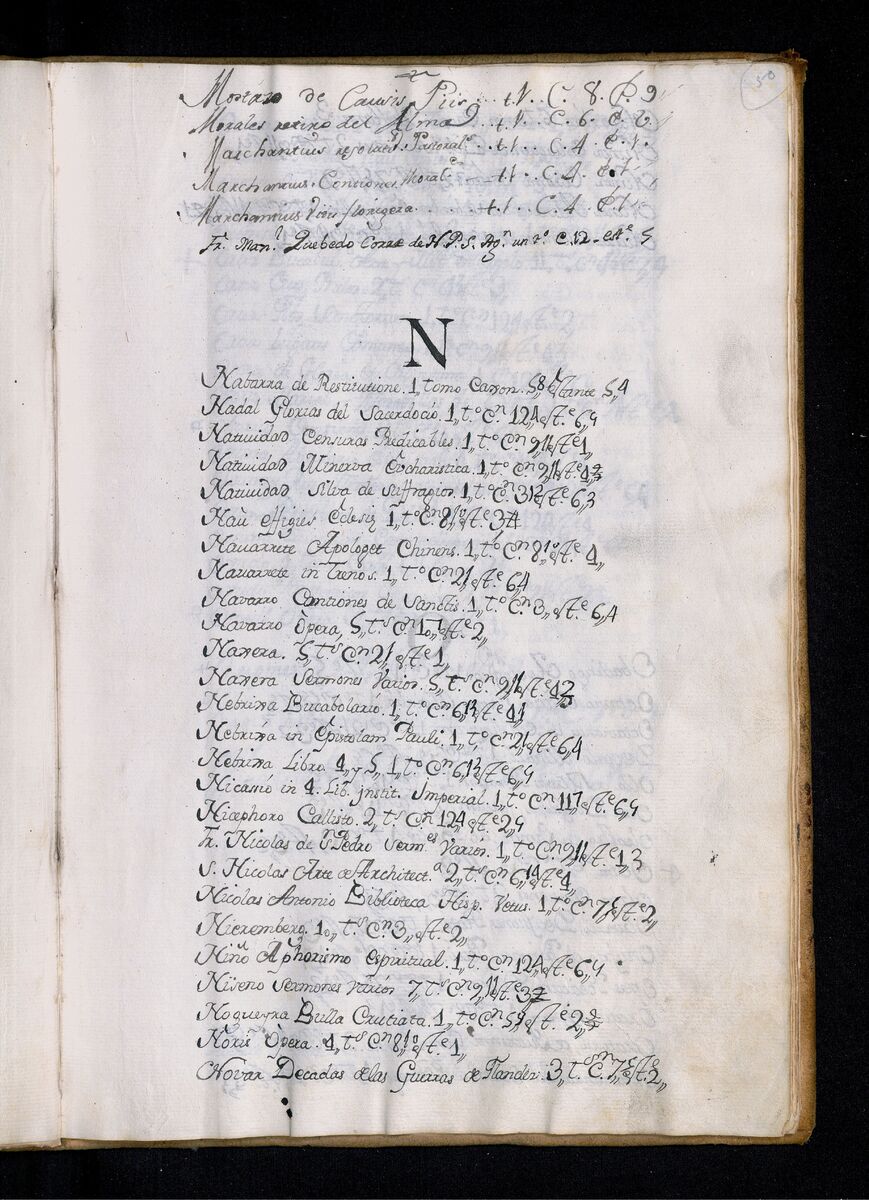 50
de Causis Piis t.1. C. 8. P. 9
Morales retiro del Alma t.1. C. 6. E.
Marchantius resolut. Pastoral.s t.1. C. 4. E. 1.
Marchantius. Conciones Moral.es t.1 C. 4. E. 1
Marchantius Vitis florigera. t.1. C. 4 E. 1
Fr. Man.l Quebedo Correa de N. P. S. Ag.n un t.o C. 12 est.e 5
N
Nabarra de Restitutione. 1,, tomo Caxon. 5,,8 estante 5,,4
Nadal Glorias del Sacerdocio. 1,, t.o C.n 12,,4 est.e 6,,4
Natiuidad Censuras Predicables. 1,, t.o C.n 9,,11 est.e 1,,
Natiuidad Minerva Eucharistica. 1,, t.o C.n 9,,11 est.e
Natiuidad Silva de Suffragios. 1,, t.o C.n 3,,12 est.e 6,,3
Nau effigies Eclesię 1,, t.o C.n 8,,10 est.e 3,,4
Nauarrete Apologet Chinens. 1,, t.o C.n 8,,10 est.e 4,,
Nauarrete in Trenos. 1,, t.o C.n 2,,1 est.e 6,,4
Navarro Contiones de Sanctis. 1,, t.o C.n 3,, est.e 6,,4
Navarro Opera, 5,, t.s C.n 10,, est.e 2,,
Naxera. 5,, t.s C.n 2,,1 est.e 1,,
Naxera Sermones Varios. 5,, t.s C.n 9,,11 est.e
Nebrixa Bucabolario. 1,, t.o C.n 6,,12 est.e 4,,1
Nebrixa in Epistolam Pauli. 1,, t.o C.n 2,,1 est.e 6,,4
Nebrixa Libro. 4,, y 5,, 1,, t.o C.n 6,,12 est.e 6,,4
Nicasio in 4. Lib. jnstit. Imperial. 1,, t.o C.n 11,,7 est.e 6,,4
Nicephoro Callisto. 2,, t.s C.n 12,,4 est.e 2,,4
Fr. Nicolas de S.n Pedro Serm.es Varios. 1,, t.o C.n 9,,11 est.e 1,,3
S. Nicolas Arte de Architect.a 2,, t.s C.n 6,,14 est.e 4,,
Nicolas Antonio Biblioteca Hisp. Vetus. 1,, t.o C.n 7,, est.e 2,,
Nieremberg. 10,, t.s C.n 3,, est.e 2,,
Niño Aphorismo espiritual. 1,, t.o C.n 12,,4 est.e 6,,4
Niseno Sermones varios 7,, t.s C.n 9,,11 est.e
Nogueyra Bulla Cruciata. 1,, t.o C.n 5,,9 est.e
Noris Opera. 4,, t.s C.n 8,,10 est.e 1,,
Novar Decadas de las Guerras de Flandes. 3,, t.s C.n 7,, est.e 2,,